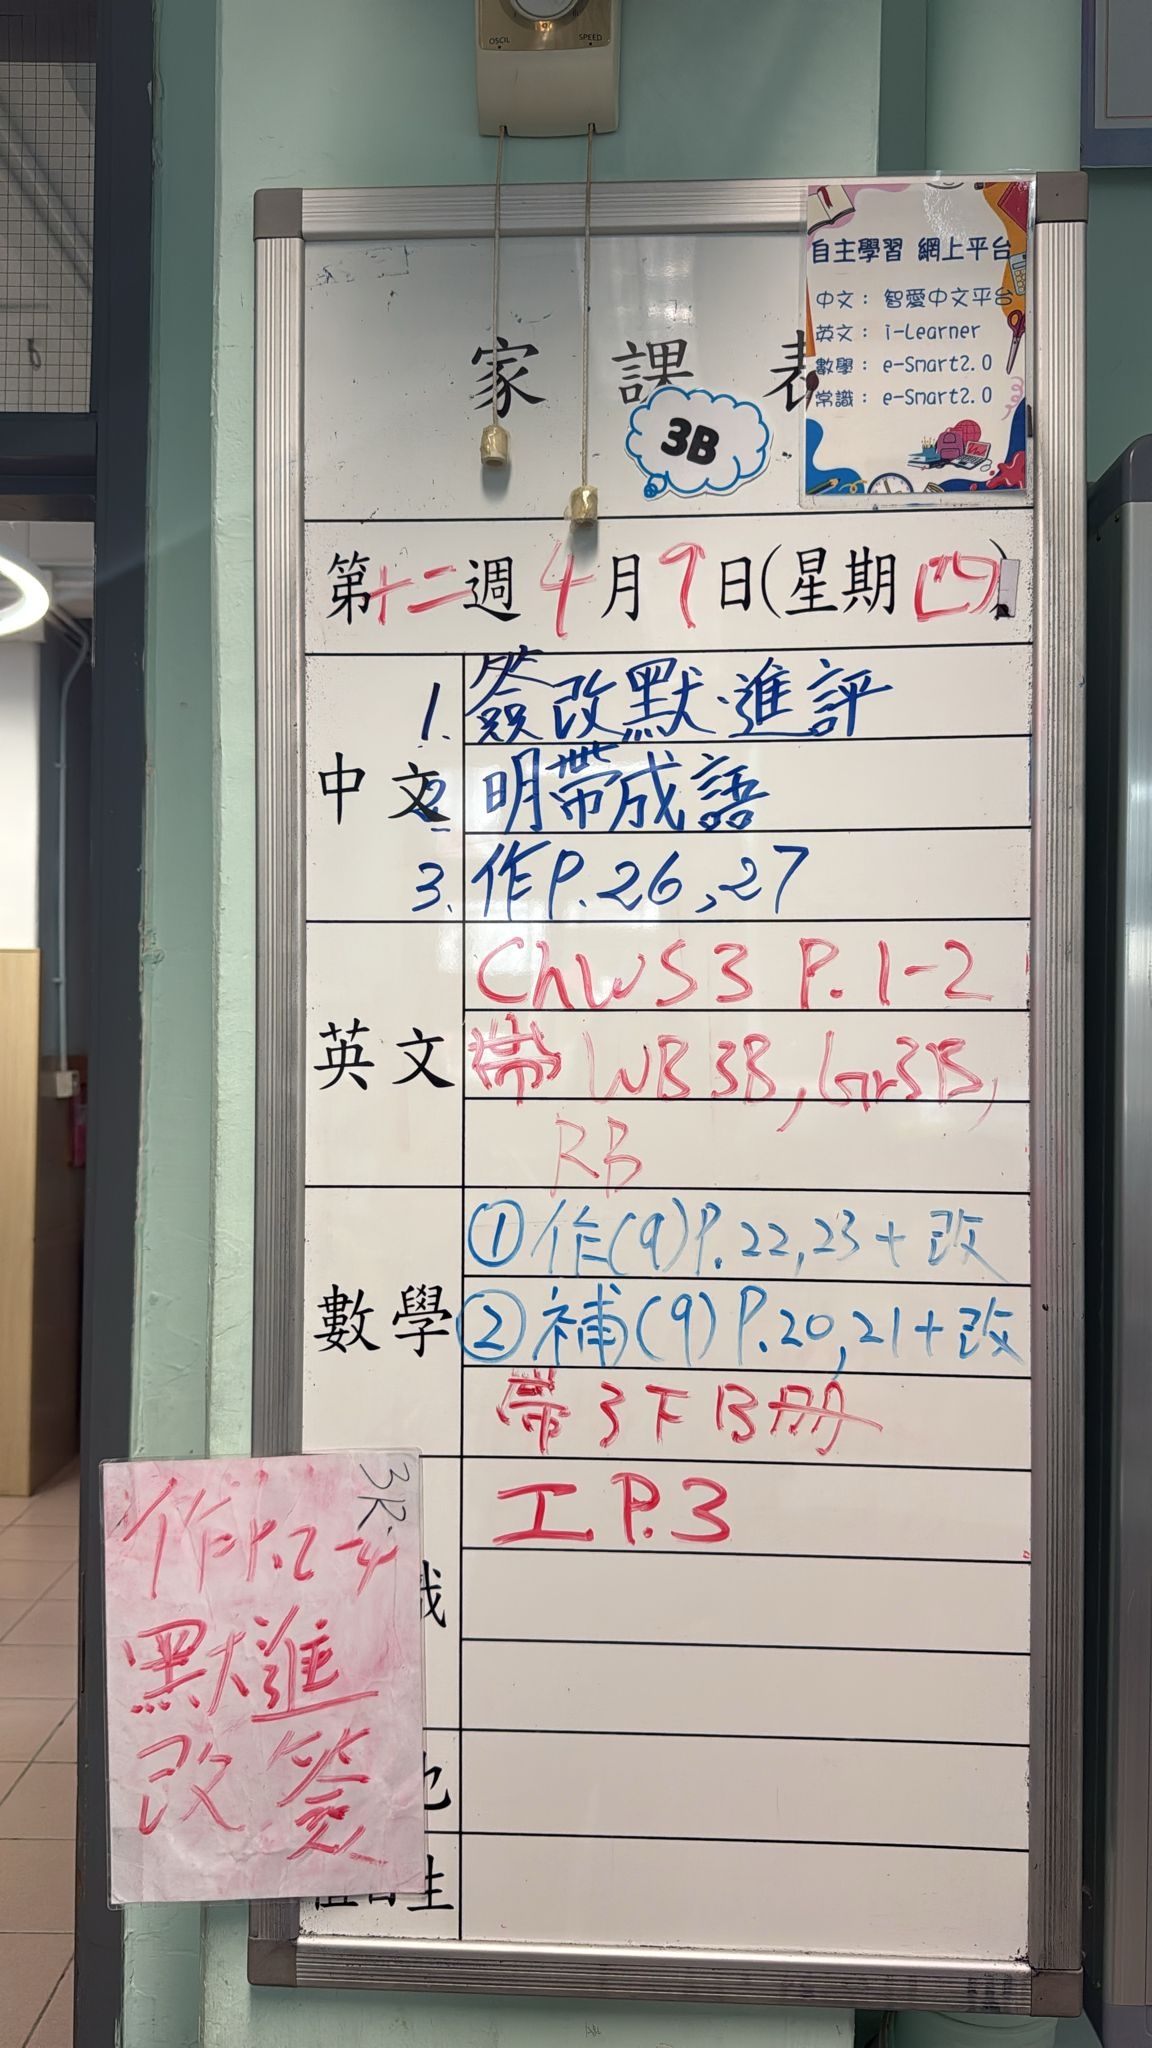 OSCIL SPEED
自主學習 網上平台
中文： 智愛中文平台
英文： i-Learner
數學： e-Smart2.0
常識： e-Smart2.0
家 課 表
3B
第十二週 4月9日(星期四)
中文
1. 簽改默.進評
2. 明帶成語
3. 作P.26,27
英文
ChWS3 P.1-2
帶 WB3B, Gr3B,
RB
數學
①作(9)P.22,23+改
②補(9)P.20,21+改
帶3下B冊
工P.3
作P.2-4
默進
改簽